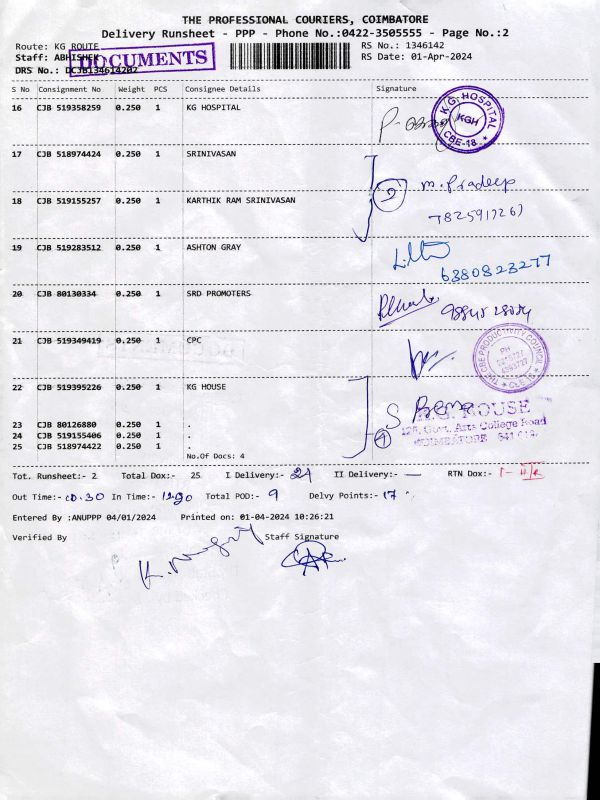 THE PROFESSIONAL COURIERS, COIMBATORE
Delivery Runsheet - PPP - Phone No.:0422-3505555 - Page No.:2
Route: KG ROUTE RS No.: 1346142
Staff: ABHISHEK RS Date: 01-Apr-2024
DOCUMENTS
DRS No.: DCJB134614202
S No Consignment No Weight PCS Consignee Details Signature
16 CJB 519358259 0.250 1 KG HOSPITAL
K.G. HOSPITAL KGH CBE-18
17 CJB 518974424 0.250 1 SRINIVASAN
2 m. Pradeep
18 CJB 519155257 0.250 1 KARTHIK RAM SRINIVASAN
19 CJB 519283512 0.250 1 ASHTON GRAY
6380823277
20 CJB 80130334 0.250 1 SRD PROMOTERS
21 CJB 519349419 0.250 1 CPC
THE CBE PRODUCTIVITY COUNCIL
22 CJB 519395226 0.250 1 KG HOUSE
K.G. HOUSE
23 CJB 80126880 0.250 1 .
Govt. Arts College Road
24 CJB 519155406 0.250 1 .
4
COIMBATORE
25 CJB 518974422 0.250 1 .
No.Of Docs: 4
Tot. Runsheet:- 2 Total Dox:- 25 I Delivery:- 24 II Delivery:- — RTN Dox:- 1
Out Time:- 10.30 In Time:- Total POD:- 9 Delvy Points:- 17
Entered By :ANUPPP 04/01/2024 Printed on: 01-04-2024 10:26:21
Verified By Staff Signature